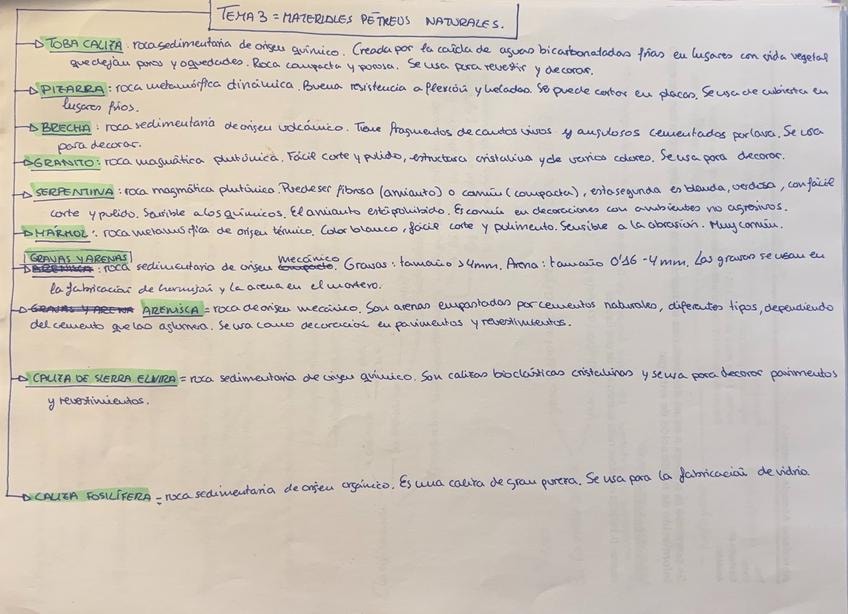 TEMA 3 = MATERIALES PÉTREOS NATURALES.
TOBA CALIZA: roca sedimentaria de origen químico. Creada por la caída de aguas bicarbonatadas frías en lugares con vida vegetal
que dejan poros y oquedades. Roca compacta y porosa. Se usa para revestir y decorar.
PIZARRA: roca metamórfica dinámica. Buena resistencia a flexión y heladas. Se puede cortar en placas. Se usa de cubierta en
lugares fríos.
BRECHA: roca sedimentaria de origen volcánico. Tiene fragmentos de cantos vivos y angulosos cementados por lava. Se usa
para decorar.
GRANITO: roca magmática plutónica. Fácil corte y pulido, estructura cristalina y de varios colores. Se usa para decorar.
SERPENTINA: roca magmática plutónica. Puede ser fibrosa (amianto) o común (compacta), esta segunda es blanda, verdosa, con fácil
corte y pulido. Sensible a los químicos. El amianto está prohibido. Es común en decoraciones con ambientes no agresivos.
MÁRMOL: roca metamórfica de origen térmico. Color blanco, fácil corte y pulimento. Sensible a la abrasión. Muy común.
GRAVAS Y ARENAS
ARENISCA: roca sedimentaria de origen compacto mecánico. Gravas: tamaño >4mm. Arena: tamaño 0'16-4mm. Las gravas se usan en
la fabricación de hormigón y la arena en el mortero.
GRAVAS Y ARENA ARENISCA = roca de origen mecánico. Son arenas empastadas por cementos naturales, diferentes tipos, dependiendo
del cemento que las aglomera. Se usa como decoración en pavimentos y revestimientos.
CALIZA DE SIERRA ELVIRA = roca sedimentaria de origen químico. Son calizas bioclásticas cristalinas y se usa para decorar pavimentos
y revestimientos.
CALIZA FOSILÍFERA = roca sedimentaria de origen orgánico. Es una caliza de gran pureza. Se usa para la fabricación de vidrio.